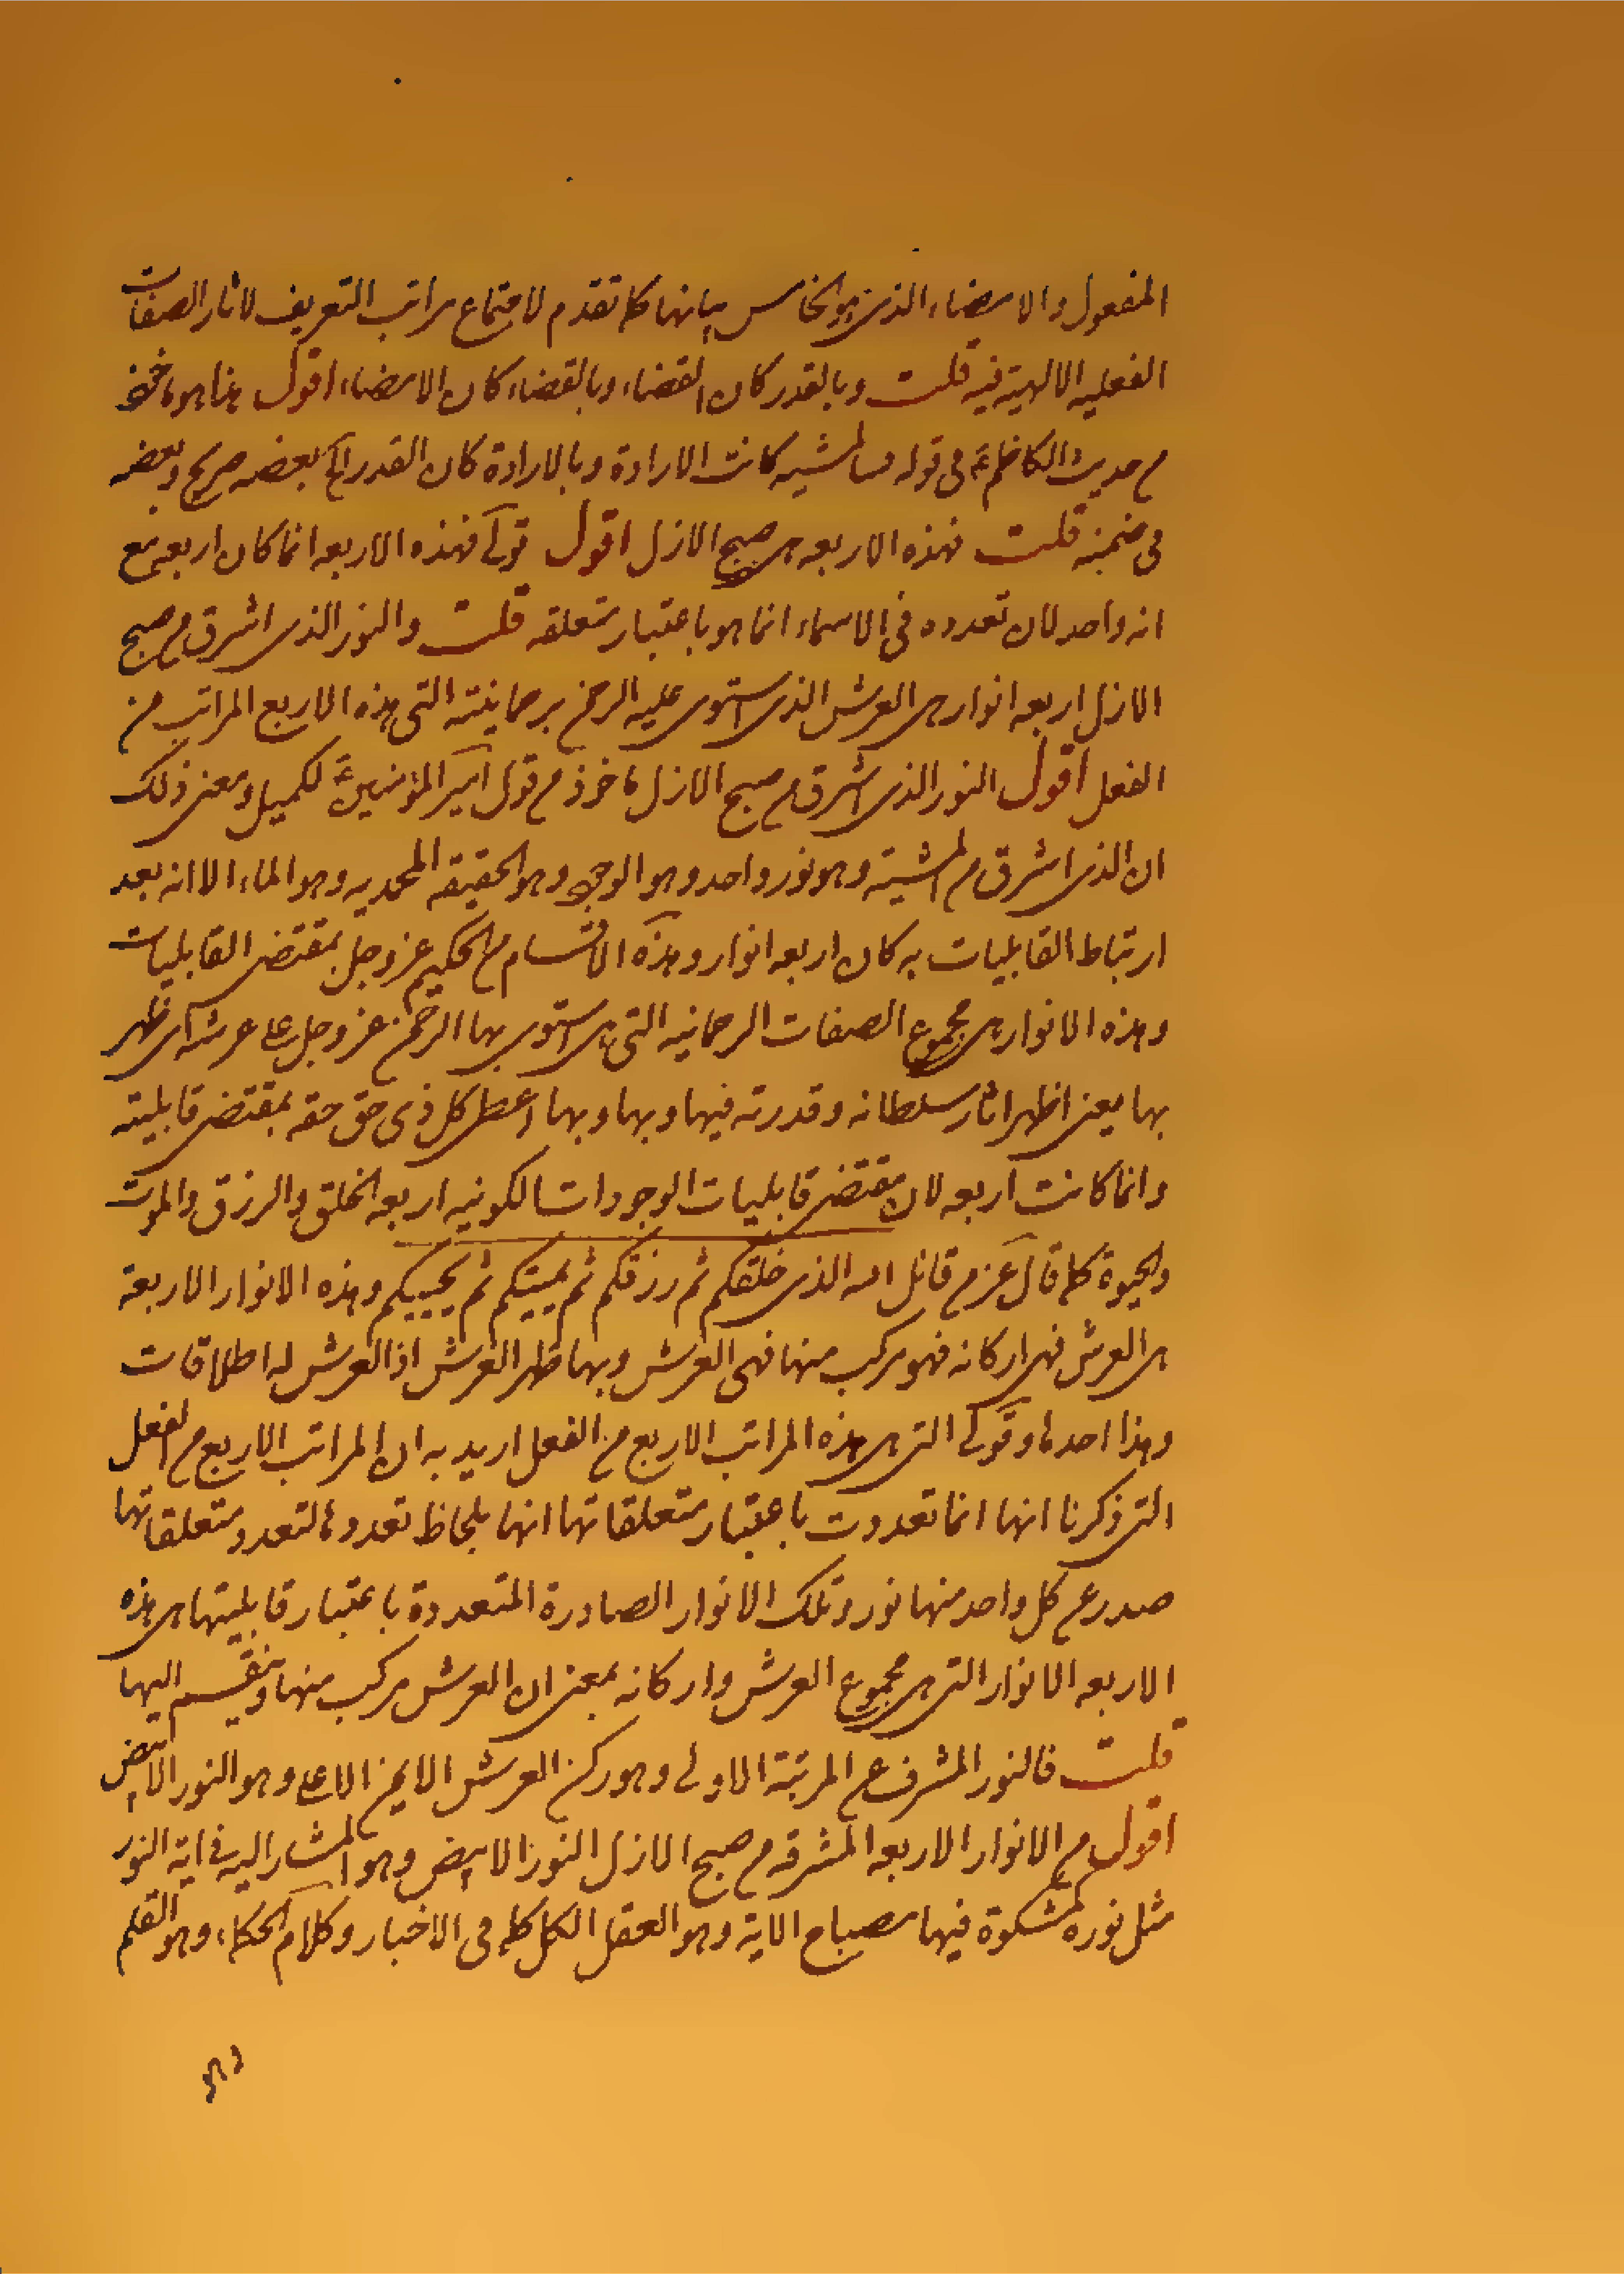 المفعول والامضاء الذى هو الخامس بيانها كما تقدم لاجتماع مراتب التعريف لاثار الصفات
الفعليه الالهية فيه قلت وبالقدر كان القضاء وبالقضاء كان الامضاء اقول هذا هو ماخوذ
من حديث الكاظم ع فى قوله فبالمشيه كانت الارادة وبالارادة كان القدر الخ بعضه صريح وبعضه
فى ضمنه قلت فهذه الاربعه هى صبح الازل اقول قولى فهذه الاربعه انما كان اربعه مع
انه واحد لان تعدده فى الاسماء انما هو باعتبار متعلقه قلت والنور الذى اشرق من صبح
الازل اربعه انوار هى العرش الذى استوى عليه الرحمن برحمانيته التى هذه الاربع المراتب من
الفعل اقول النور الذى اشرق من صبح الازل ماخوذ من قول امير المؤمنين ع لكميل ومعنى ذلك
ان الذى اشرق من المشية وهو نور واحد وهو الوجود وهو الحقيقه المحمديه وهو الماء الا انه بعد
ارتباط القابليات به كان اربعه انوار وهذه الاقسام من الحكيم عز وجل بمقتضى القابليات
وهذه الانوار هى مجموع الصفات الرحمانيه التى هى استوى بها الرحمن عز وجل على عرشه اى ظهر
بها يعنى اظهر اثار سلطانه وقدرته فيها وبها وبها اعطى كل ذى حق حقه بمقتضى قابليته
وانما كانت اربعه لان مقتضى قابليات الوجودات الكونيه اربعه الخلق والرزق والموت
والحيوة كما قال عز من قائل الله الذى خلقكم ثم رزقكم ثم يميتكم ثم يحييكم وهذه الانوار الاربعة
هى العرش فهى اركانه فهو مركب منها فهى العرش وبها ظهر العرش اذ العرش له اطلاقات
وهذا احدها وقولى التى هى هذه المراتب الاربع من الفعل اريد به ان المراتب الاربع من الفعل
التى ذكرنا انها انما تعددت باعتبار متعلقاتها انها بلحاظ تعددها لتعدد متعلقاتها
صدر عن كل واحد منها نور وتلك الانوار الصادرة المتعددة باعتبار قابليتها هى هذه
الاربعه الانوار التى هى مجموع العرش واركانه بمعنى ان العرش مركب منها وتنقسم اليها
قلت فالنور المشرق عن المرتبة الاولى وهو ركن العرش الايمن الاعلى وهو النور الابيض
اقول من الانوار الاربعه المشرقه من صبح الازل النور الابيض وهو المشار اليه فى اية النور
مثل نوره كمشكوة فيها مصباح الاية وهو العقل الكل كما فى الاخبار وكلام الحكماء وهو القلم